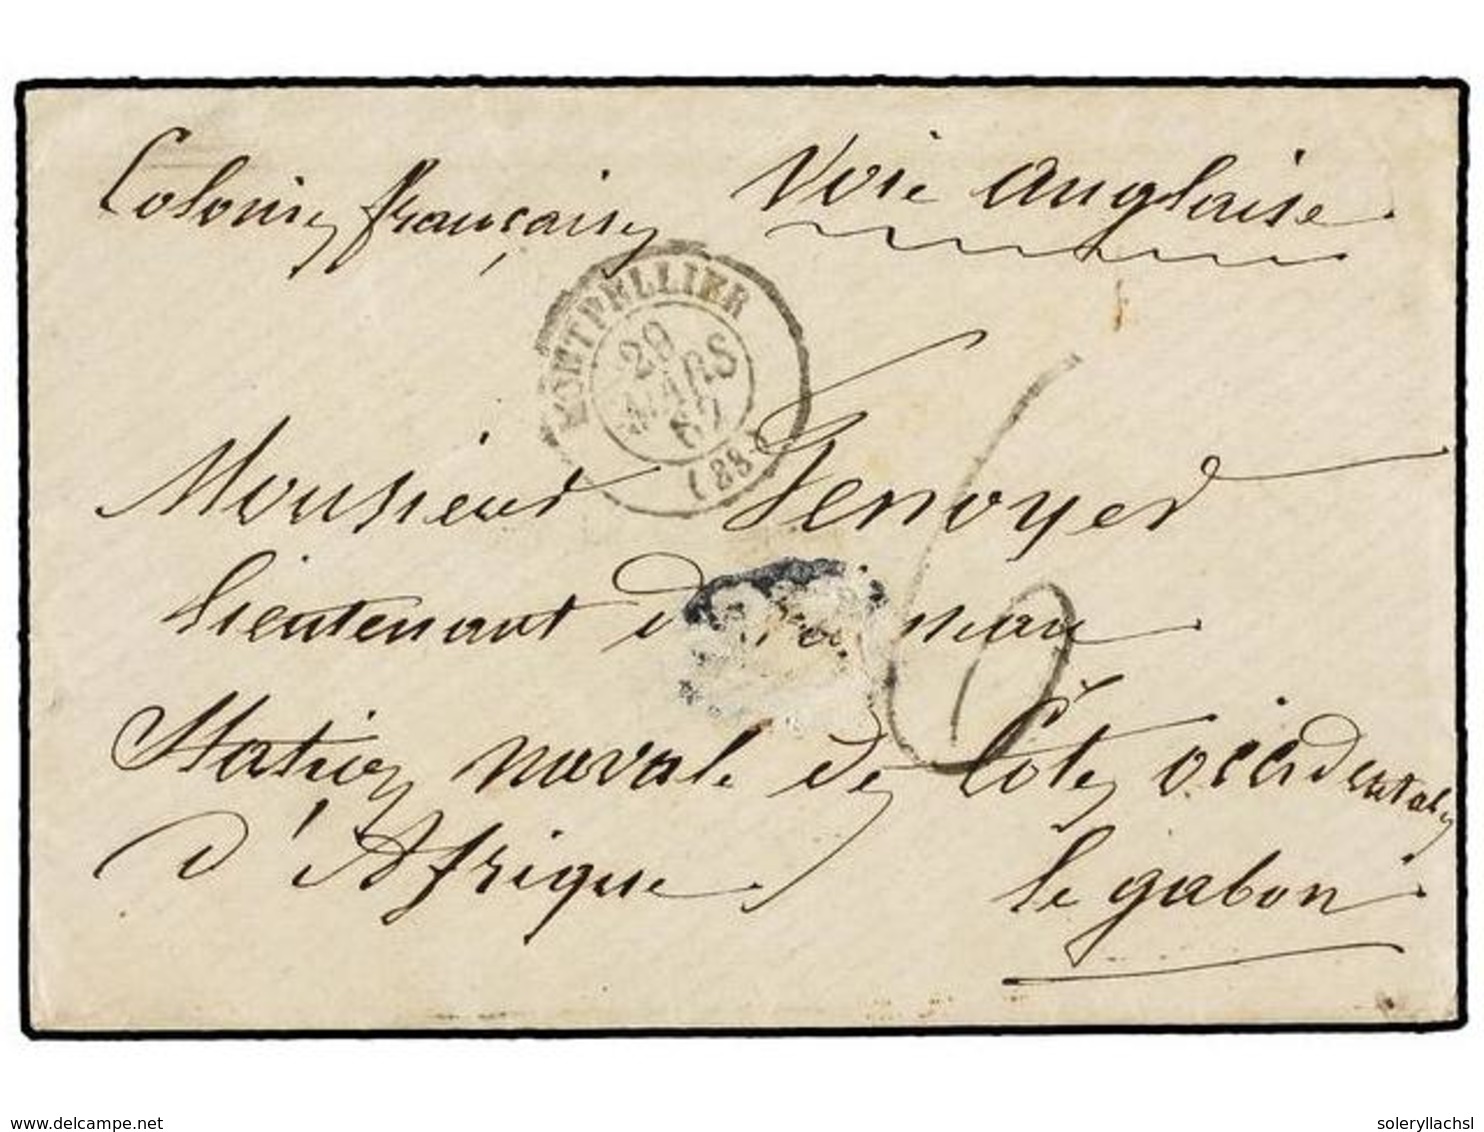 Colonies françaises
Voie anglaise
MONTPELLIER
29
MARS
67
Monsieur Genoyer
lieutenant de vaisseau
Station navale des Côtes occidentales
d'Afrique
le gabon
6
delcampe.net
soleryllachsl